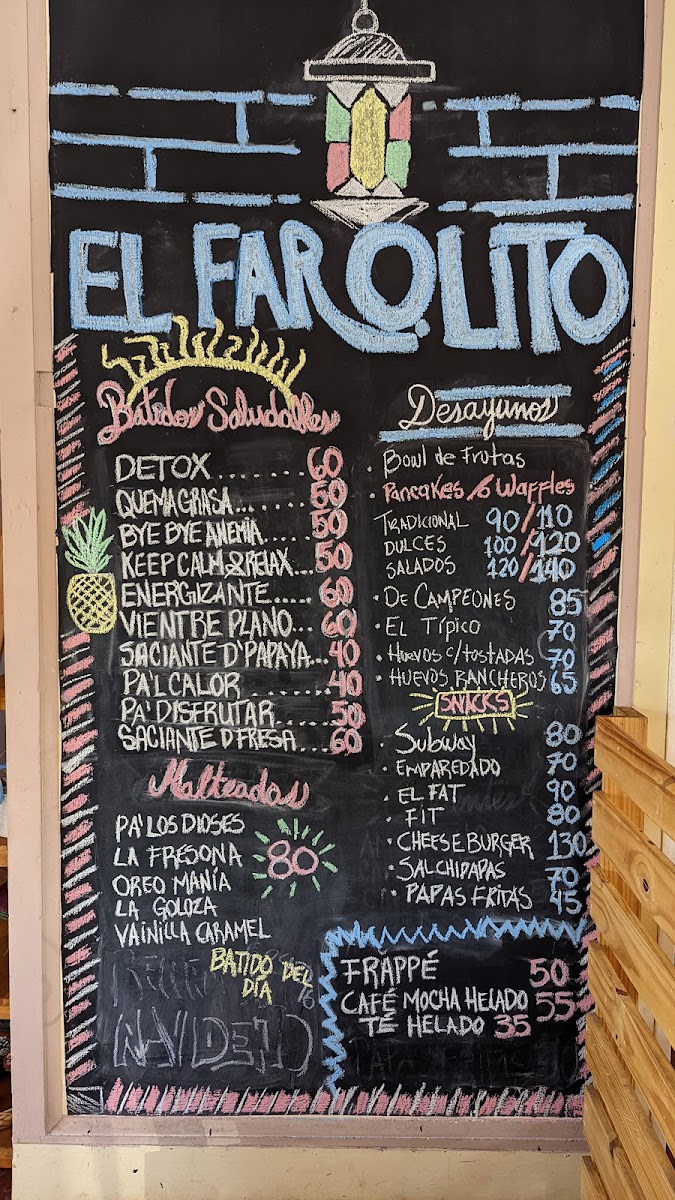 EL FAROLITO
Batidos Saludables
DETOX........60
QUEMAGRASA...50
BYE BYE ANEMIA.....50
KEEP CALM & RELAX...50
ENERGIZANTE.....60
VIENTRE PLANO...60
SACIANTE D'PAPAYA...40
PA'L CALOR........40
PA' DISFRUTAR......50
SACIANTE D FRESA...60
Malteadas
PA' LOS DIOSES
LA FRESONA
80
OREO MANÍA
LA GOLOZA
VAINILLA CARAMEL
BATIDO DEL
DÍA
Desayunos
• Bowl de Frutas
• PANCAKES /ó WAFFLES
TRADICIONAL 90/110
DULCES 100/120
SALADOS 120/140
• DE CAMPEONES 85
• EL TÍPICO 70
• HUEVOS C/TOSTADAS 70
• HUEVOS RANCHEROS 65
SNACKS
• SUBWAY 80
• EMPAREDADO 70
• EL FAT 90
• FIT 80
• CHEESEBURGER 130
• SALCHIPAPAS 70
• PAPAS FRITAS 45
FRAPPÉ 50
CAFÉ MOCHA HELADO 55
TÉ HELADO 35